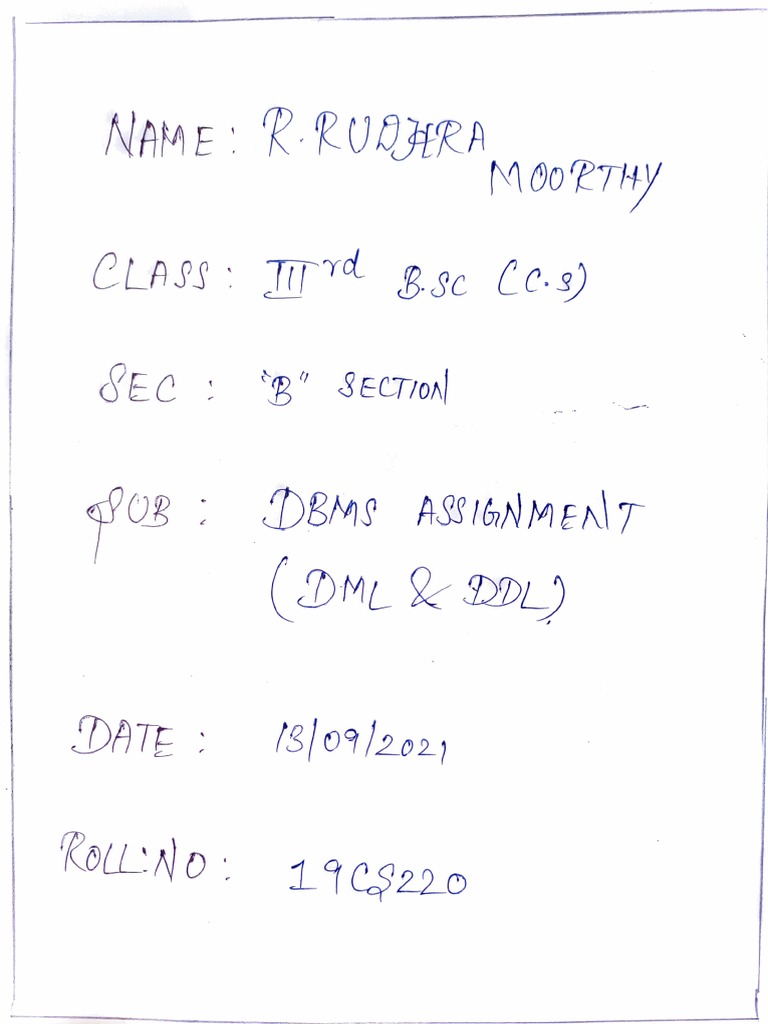 NAME : R. RUDHRA
MOORTHY
CLASS : IIIrd B.SC (C.S)
SEC : "B" SECTION
SUB : DBMS ASSIGNMENT
(DML & DDL)
DATE : 13/09/2021
ROLL:NO : 19CS220